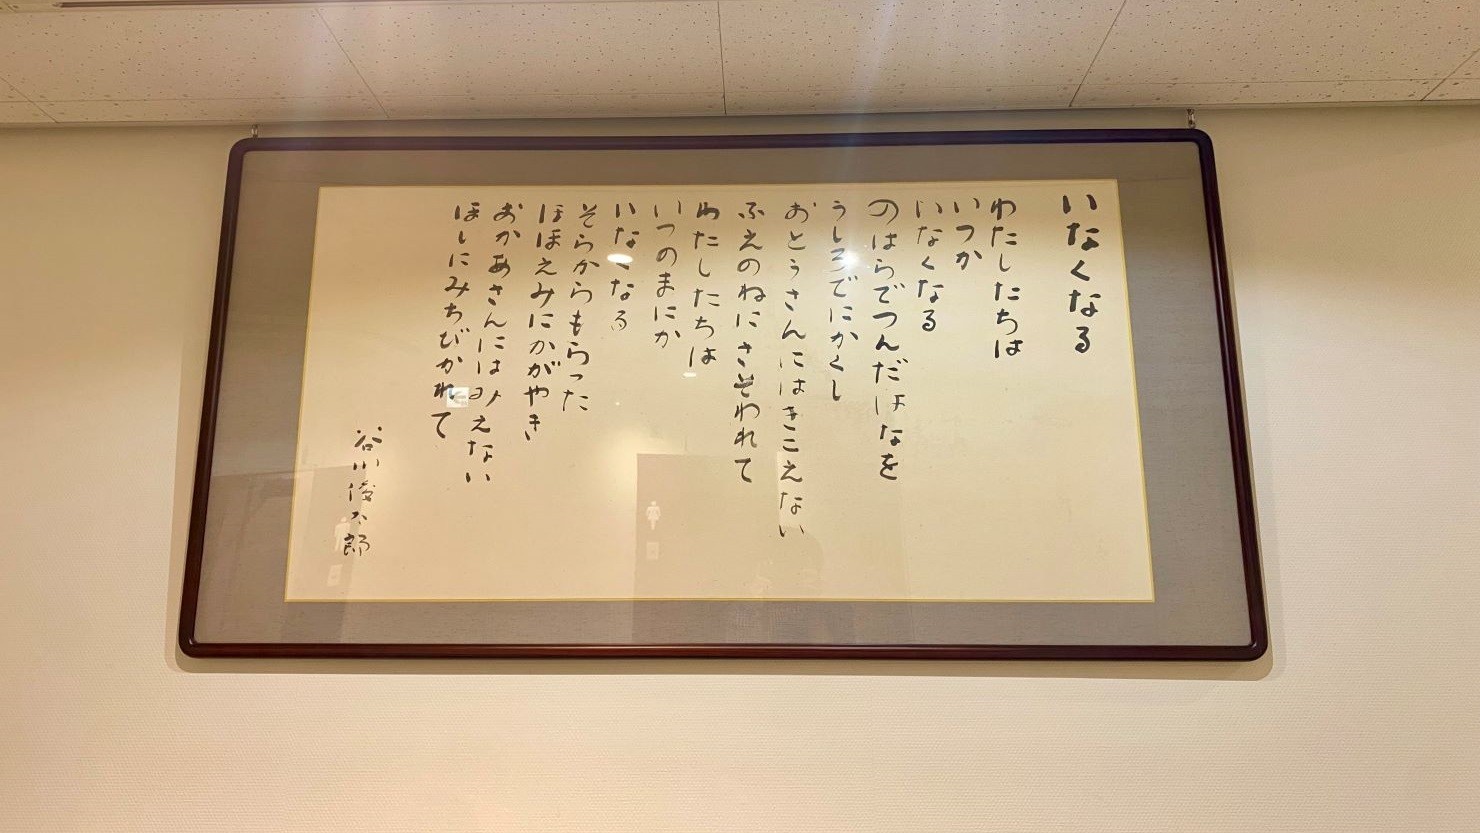 いなくなる
わたしたちは
いつか
いなくなる
のはらでつんだはなを
うしろでにかくし
おとうさんにはきこえない
ふえのねにさそわれて
わたしたちは
いつのまにか
いなくなる
そらからもらった
ほほえみにかがやき
おかあさんにはみえない
ほしにみちびかれて
谷川俊太郎